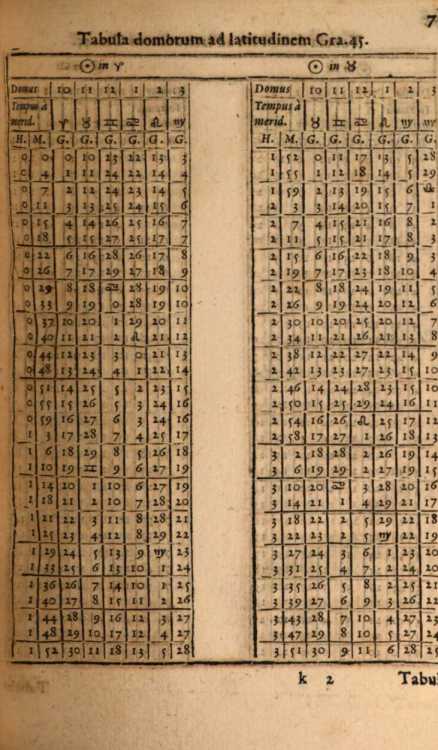 7
Tabula domorum ad latitudinem Gra.45.
☉ in ♈ ☉ in ♉
Domus 10 11 12 1 2 3 Domus 10 11 12 1 2 3
Tempus à Tempus à
merid. ♈ ♉ ♊ ♋ ♌ ♍ merid. ♉ ♊ ♋ ♌ ♍ ♍
H. M. G. G. G. G. G. G. H. M. G. G. G. G. G. G.
0 0 0 10 23 22 13 3 1 52 0 11 17 13 5 28
0 4 1 11 24 22 14 4 1 55 1 12 18 14 5 29
0 7 2 12 24 23 14 5 1 59 2 13 19 15 6 ♎
0 11 3 13 25 24 15 6 2 3 3 14 20 15 7 1
0 15 4 14 26 25 16 7 2 7 4 15 21 16 8 2
0 18 5 15 27 25 17 7 2 11 5 15 21 17 8 3
0 22 6 16 28 26 17 8 2 15 6 16 22 18 9 3
0 26 7 17 29 27 18 9 2 19 7 17 23 18 10 4
0 29 8 18 ♋ 28 19 10 2 22 8 18 24 19 11 5
0 33 9 19 0 28 19 10 2 26 9 19 24 20 12 6
0 37 10 20 1 29 20 11 2 30 10 20 25 20 12 7
0 40 11 21 2 ♌ 21 12 2 34 11 21 26 21 13 8
0 44 12 23 3 0 21 13 2 38 12 22 27 22 14 9
0 48 13 24 4 1 22 14 2 42 13 23 27 23 15 10
0 51 14 25 5 2 23 15 2 46 14 24 28 23 15 10
0 55 15 26 5 3 24 16 2 50 15 25 29 24 16 11
0 59 16 27 6 3 24 16 2 54 16 26 ♌ 25 17 12
1 3 17 28 7 4 25 17 2 58 17 27 1 26 18 13
1 6 18 29 8 5 26 18 3 2 18 28 2 26 19 14
1 10 19 ♊ 9 6 27 19 3 6 19 29 2 27 19 15
1 14 20 1 10 6 27 19 3 10 20 ♋ 3 28 20 16
1 18 21 2 10 7 28 20 3 14 21 1 4 29 21 17
1 21 22 3 11 8 28 21 3 18 22 2 5 29 22 18
1 25 23 4 12 8 29 22 3 22 23 2 5 ♍ 22 19
1 29 24 5 13 9 ♍ 23 3 27 24 3 6 1 23 20
1 33 25 6 13 10 1 24 3 31 25 4 7 2 24 20
1 36 26 7 14 10 1 25 3 35 26 5 8 2 25 21
1 40 27 8 15 11 2 26 3 39 27 6 9 3 26 22
1 44 28 9 16 12 3 27 3 43 28 7 10 4 27 23
1 48 29 10 17 12 4 27 3 47 29 8 10 5 27 24
1 52 30 11 18 13 5 28 3 51 30 9 11 6 28 25
k 2 Tabu